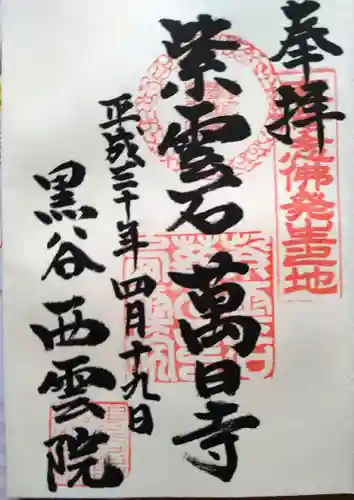 奉拝
念佛発生地
紫雲石 萬日寺
平成三十年四月十九日
黒谷 西雲院